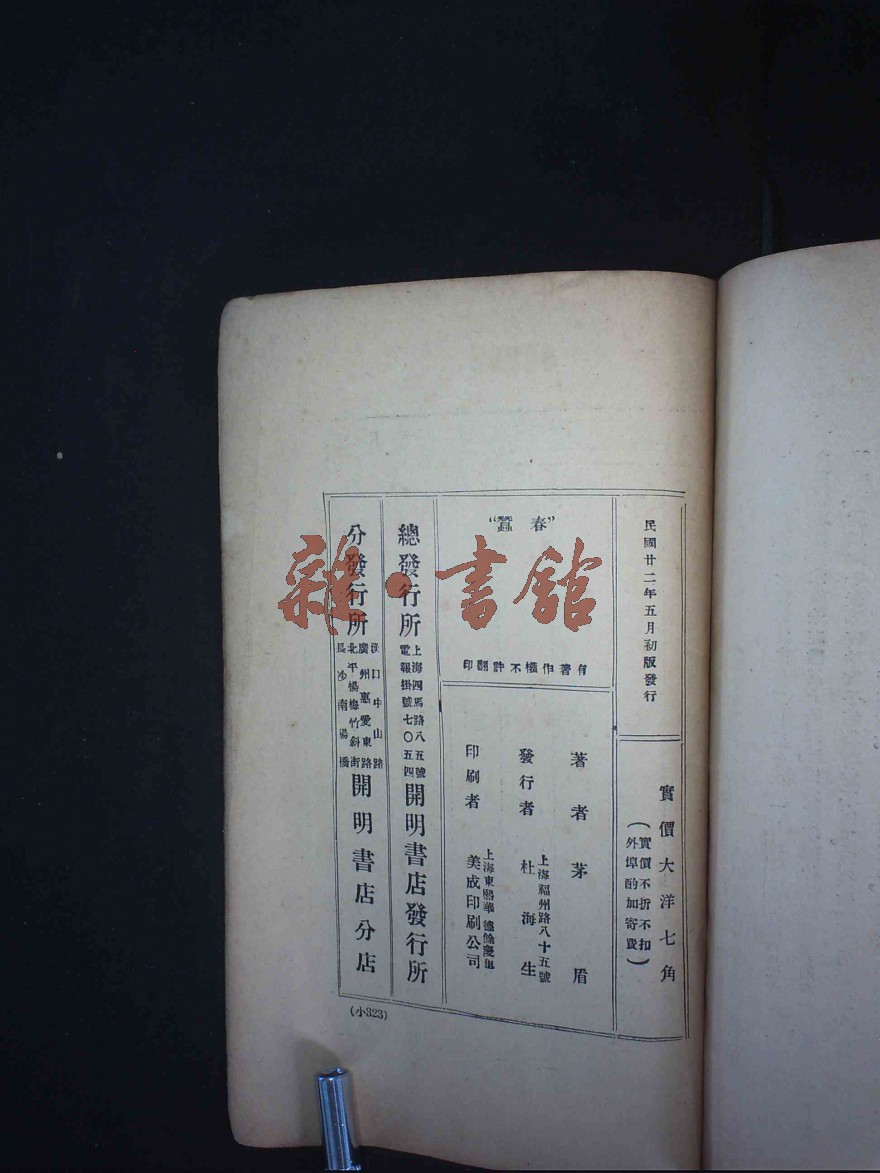 民國廿二年五月初版發行
實價大洋七角
(實價不折不扣
外埠酌加寄費)
"春蠶"
有著作權不許翻印
著者 茅盾
發行者 上海福州路八十五號
杜海生
印刷者 上海東熙華德路餘慶里
美成印刷公司
總發行所 上海四馬路八五號
電報掛號七〇五四
開明書店發行所
分發行所
漢口中山路
廣州惠愛東路
北平楊梅竹斜街
長沙南陽橋
開明書店分店
(小323)
雜·書館